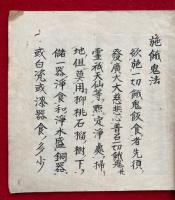 施餓鬼法
欲施一切餓鬼飲食者先須
發廣大大慈悲心普召一切餓鬼
靈祇天仙等點定淨處掃
地但莫用柳桃石榴樹下
儲一器淨食和淨水盛銅器
或白瓷或漆器食多少